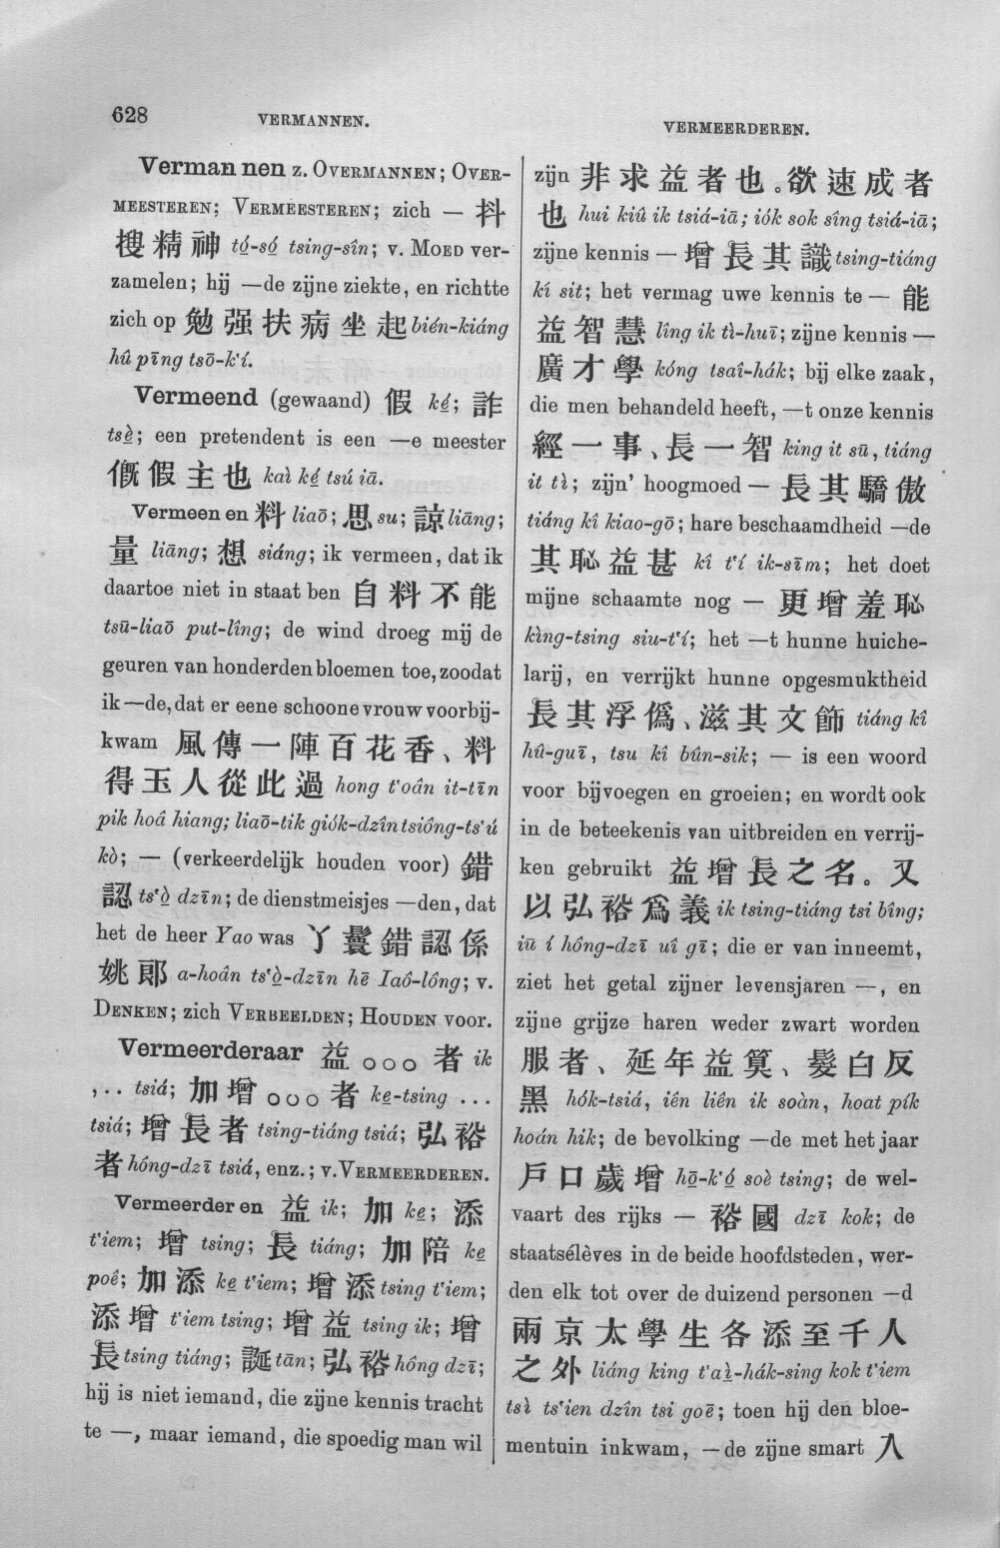 628
VERMANNEN.
VERMEERDEREN.
Vermannen z. OVERMANNEN; OVER-
MEESTEREN; VERMEESTEREN; zich — 抖
擻精神 tó̱-só̱ tsing-sîn; v. MOED ver-
zamelen; hij —de zijne ziekte, en richtte
zich op 勉强扶病坐起 bién-kiáng
hû pīng tsō-k'í.
Vermeend (gewaand) 假 ké̱; 詐
tsè̱; een pretendent is een —e meester
慨假主也 kaì ké̱ tsú iā.
Vermeenen 料 liaō; 思 su; 諒 liāng;
量 liāng; 想 siáng; ik vermeen, dat ik
daartoe niet in staat ben 自料不能
tsū-liaō put-lîng; de wind droeg mij de
geuren van honderden bloemen toe, zoodat
ik —de, dat er eene schoone vrouw voorbij-
kwam 風傳一陣百花香、料
得玉人從此過 hong t'oân it-tīn
pik hoâ hiang; liaō-tik giók-dzîn tsiông-ts'ú
kò; — (verkeerdelijk houden voor) 錯
認 ts'ò̱ dzīn; de dienstmeisjes —den, dat
het de heer Yao was 丫鬟錯認係
姚郞 a-hoân ts'ò̱-dzīn hē Iaô-lông; v.
DENKEN; zich VERBEELDEN; HOUDEN voor.
Vermeerderaar 益○○○者 ik
... tsiá; 加增○○○者 ke̱-tsing ...
tsiá; 增長者 tsing-tiáng tsiá; 弘裕
者 hông-dzī tsiá, enz.; v. VERMEERDEREN.
Vermeerderen 益 ik; 加 ke̱; 添
t'iem; 增 tsing; 長 tiáng; 加陪 ke̱
poê; 加添 ke̱ t'iem; 增添 tsing t'iem;
添增 t'iem tsing; 增益 tsing ik; 增
長 tsing tiáng; 誕 tān; 弘裕 hông dzī;
hij is niet iemand, die zijne kennis tracht
te —, maar iemand, die spoedig man wil
zijn 非求益者也。欲速成者
也 hui kiû ik tsiá-iā; iók sok sîng tsiá-iā;
zijne kennis — 增長其識 tsing-tiáng
kí sit; het vermag uwe kennis te — 能
益智慧 lîng ik tì-huī; zijne kennis —
廣才學 kóng tsaî-hák; bij elke zaak,
die men behandeld heeft, —t onze kennis
經一事、長一智 king it sū, tiáng
it tì; zijn' hoogmoed — 長其驕傲
tiáng kî kiao-gō; hare beschaamdheid —de
其恥益甚 kî t'í ik-sīm; het doet
mijne schaamte nog — 更增羞恥
kìng-tsing siu-t'í; het —t hunne huiche-
larij, en verrijkt hunne opgesmuktheid
長其浮僞、滋其文飾 tiáng kî
hû-guī, tsu kî bûn-sik; — is een woord
voor bijvoegen en groeien; en wordt ook
in de beteekenis van uitbreiden en verrij-
ken gebruikt 益增長之名。又
以弘裕爲義 ik tsing-tiáng tsi bîng;
iū í hông-dzī uî gī; die er van inneemt,
ziet het getal zijner levensjaren —, en
zijne grijze haren weder zwart worden
服者、延年益筭、髮白反
黑 hók-tsiá, iên liên ik soàn, hoat pík
hoán hik; de bevolking —de met het jaar
戶口歲增 hō̱-k'ó̱ soè tsing; de wel-
vaart des rijks — 裕國 dzī kok; de
staatsélèves in de beide hoofdsteden, wer-
den elk tot over de duizend personen —d
兩京太學生各添至千人
之外 liáng king t'aì-hák-sing kok t'iem
tsì ts'ien dzîn tsi goē; toen hij den bloe-
mentuin inkwam, —de zijne smart 入